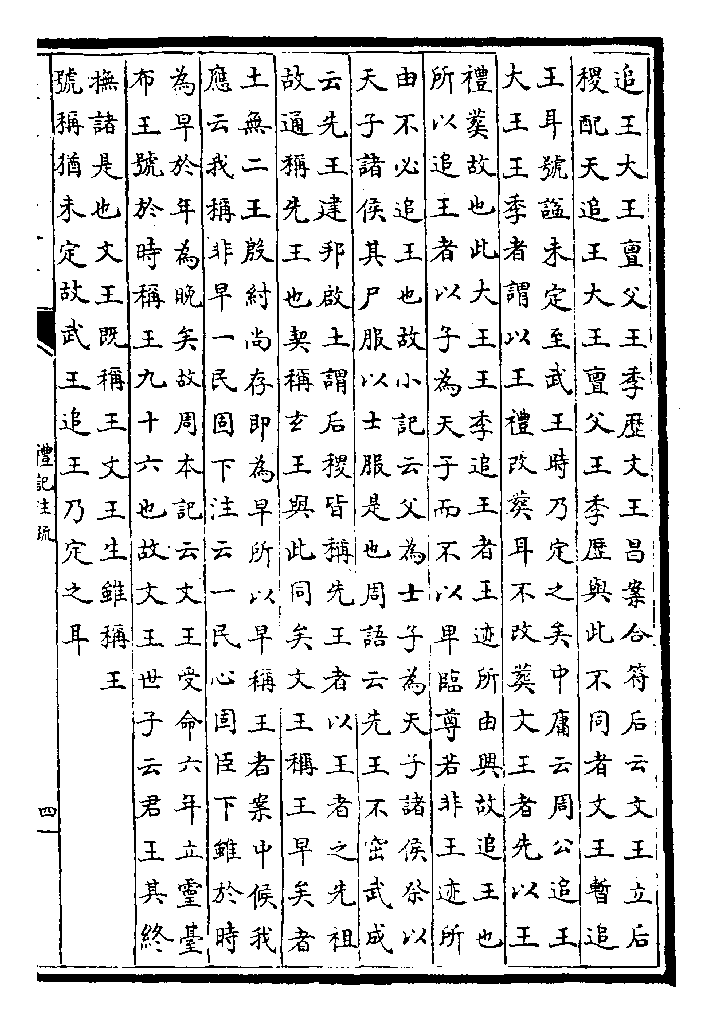 追王大王亶父王季歷文王昌案合符后云文王立后
稷配天追王大王亶父王季歷與此不同者文王暫追
王耳號諡未定至武王時乃定之矣中庸云周公追王
大王王季者謂以王禮改葬耳不改葬文王者先以王
禮葬故也此大王王季追王者王迹所由興故追王也
所以追王者以子為天子而不以卑臨尊若非王迹所
由不必追王也故小記云父為士子為天子諸侯祭以
天子諸侯其尸服以士服是也周語云先王不窋武成
云先王建邦啟土謂后稷皆稱先王者以王者之先祖
故通稱先王也契稱玄王與此同矣文王稱王早矣者
土無二王殷紂尚存即為早所以早稱王者案中候我
應云我稱非早一民固下注云一民心固臣下雖於時
為早於年為晚矣故周本記云文王受命六年立靈臺
布王號於時稱王九十六也故文王世子云君王其終
撫諸是也文王既稱王文王生雖稱王
號稱猶未定故武王追王乃定之耳
禮記注疏
四